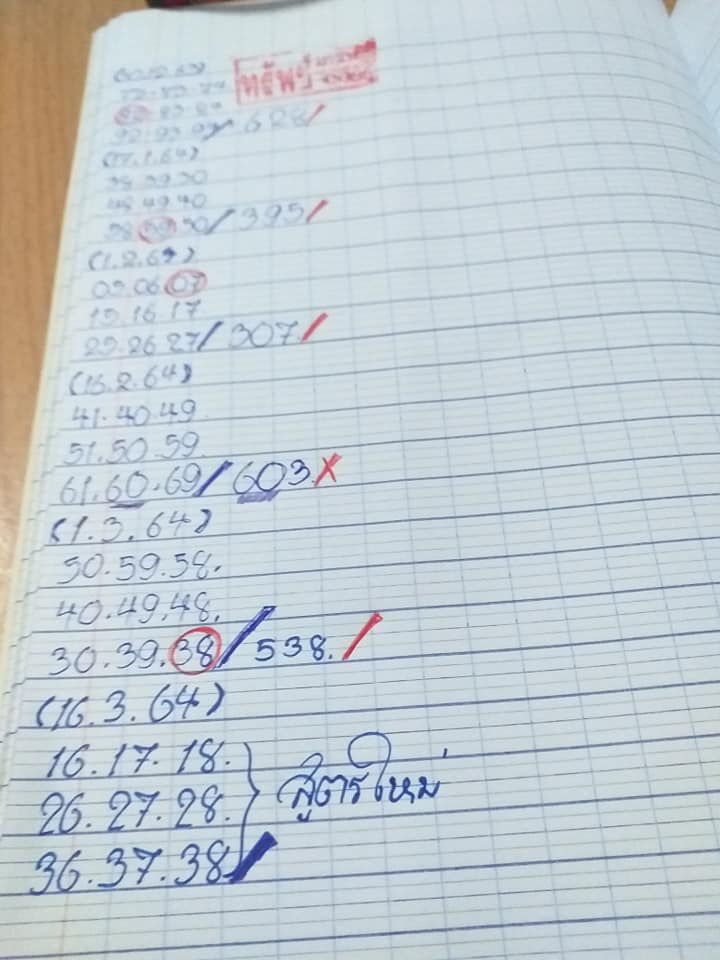 ทรัพย์
628/
(17.1.64)
38.39.30
48.49.40
58.59.50/395/
(1.2.64)
05.06.07
15.16.17
25.26.27/307./
(16.2.64)
41.40.49.
51.50.59.
61.60.69/603.X
(1.3.64)
50.59.58.
40.49.48.
30.39.38/538./
(16.3.64)
16.17.18.
26.27.28. } สูตรใหม่
36.37.38/